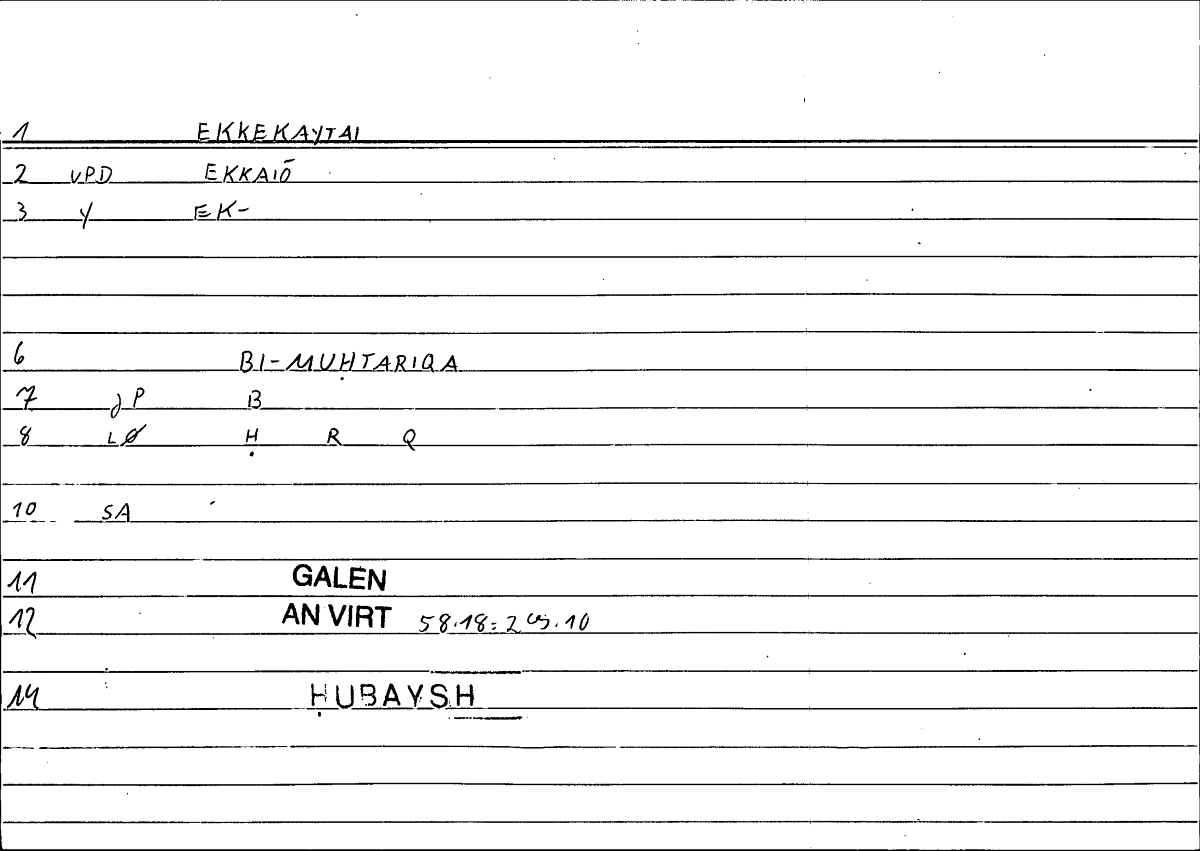 1 EKKEKAYTAI
2 VPD EKKAIŌ
3 Y EK-
6 BI-MUḤTARIQA
7 JP B
8 LØ Ḥ R Q
10 SA
11 GALEN
12 AN VIRT 58.18:2
14 ḤUBAYSH